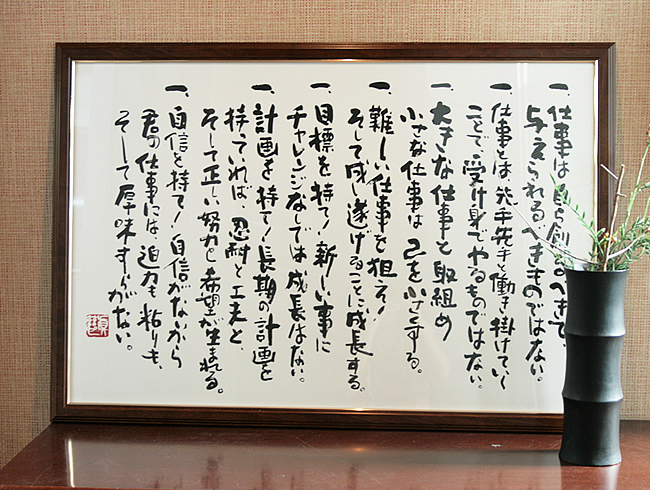 一、仕事は自ら創るべきで、
与えられるべきものではない。
一、仕事とは、先手先手と働き掛けていく
ことで、受け身でやるものではない。
一、大きな仕事と取組め
小さな仕事は己を小さくする。
一、難しい仕事を狙え!
そして成し遂げることに成長する。
一、目標を持て!新しい事に
チャレンジなしでは成長はない。
一、計画を持て!長期の計画を
持っていれば、忍耐と工夫と、
そして正しい努力と希望が生まれる。
一、自信を持て!自信がなから
君の仕事には、迫力も粘りも、
そして厚味すらがない。